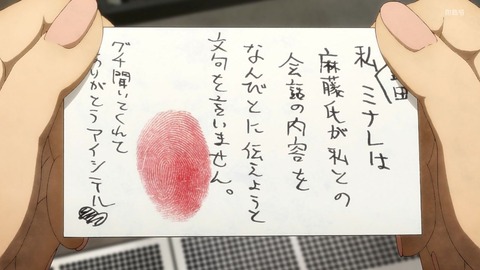 田
私ミナレは
麻藤氏が私との
会話の内容を
なんびとに伝えようと
文句を言いません。
グチ聞いてくれて
ありがとうアイシテル